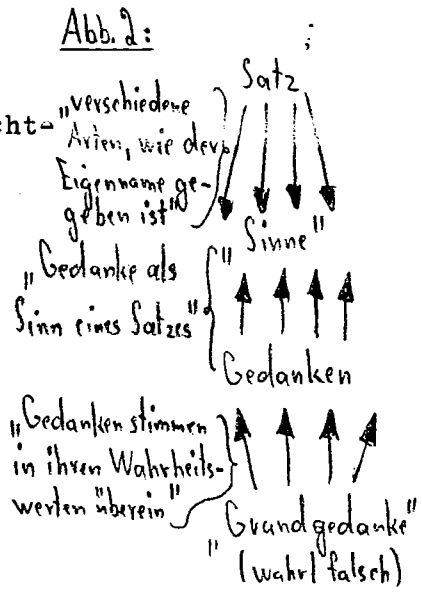 Abb. 2:
;
Satz
cht-
„verschiedene
Arten, wie der
Eigenname ge-
geben ist"
„Sinne"
„Gedanke als
Sinn eines Satzes"
Gedanken
„Gedanken stimmen
in ihren Wahrheits-
werten überein"
„Grundgedanke"
(wahr/falsch)